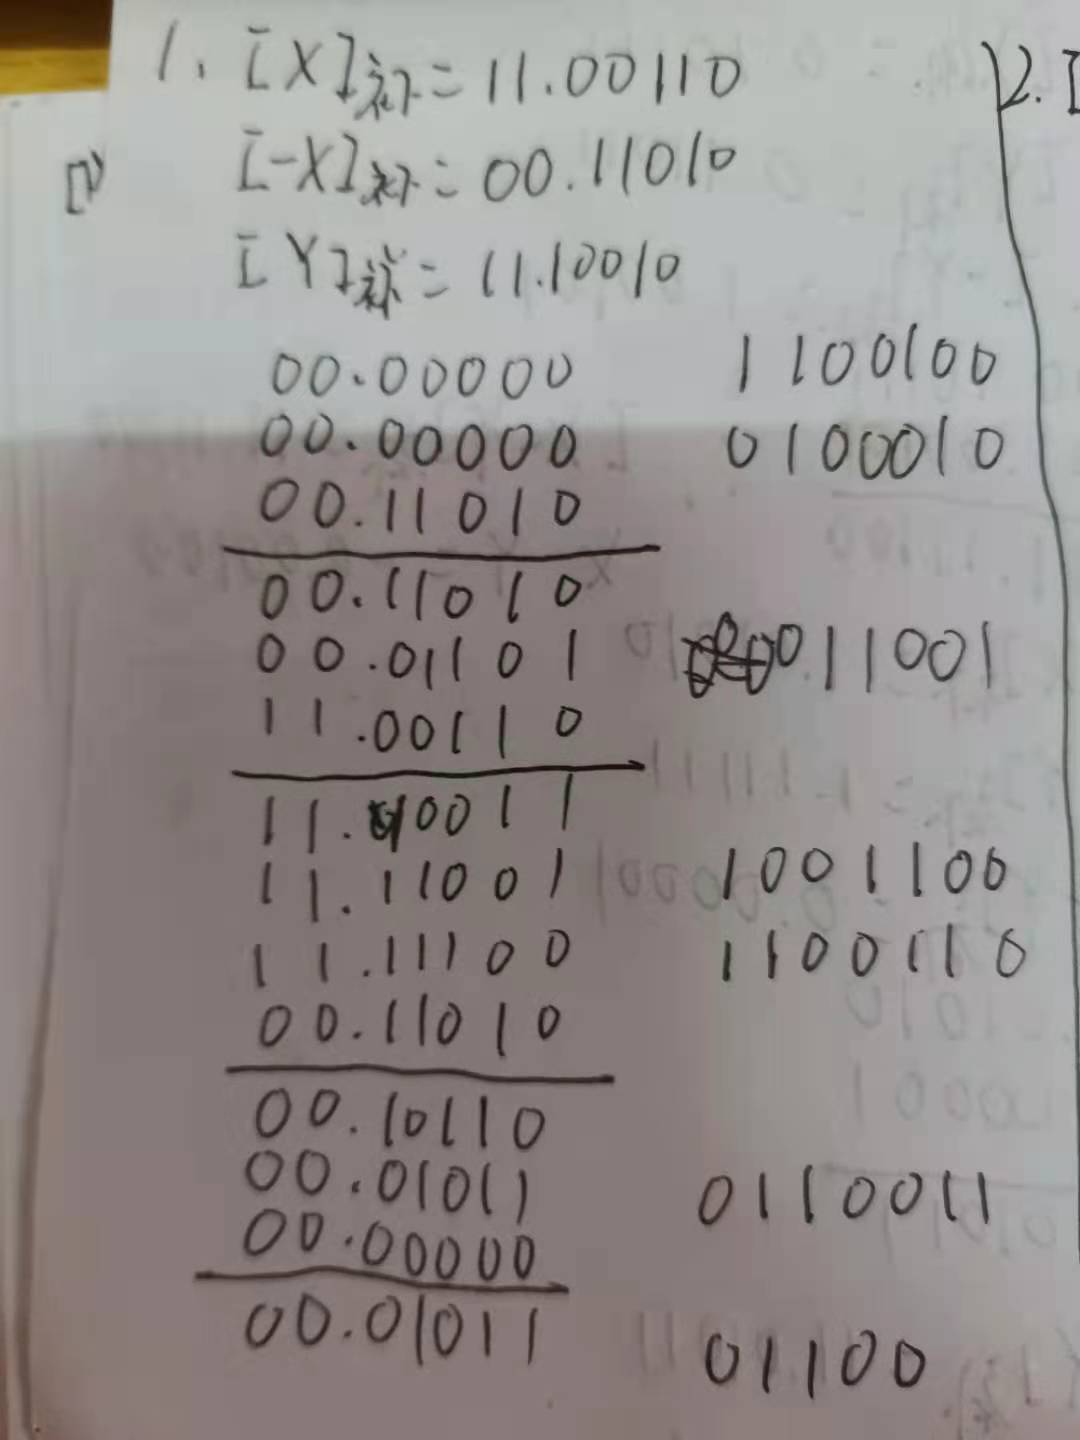 1. [X]补=11.00110
2. [
(1) [-X]补=00.11010
[Y]补=11.10010
00.00000 1100100
00.00000 0100010
00.11010
00.11010
00.01101 0011001
11.00110
11.10011
11.11001 1001100
11.11100 1100110
00.11010
00.10110
00.01011 0110011
00.00000
00.01011 01100